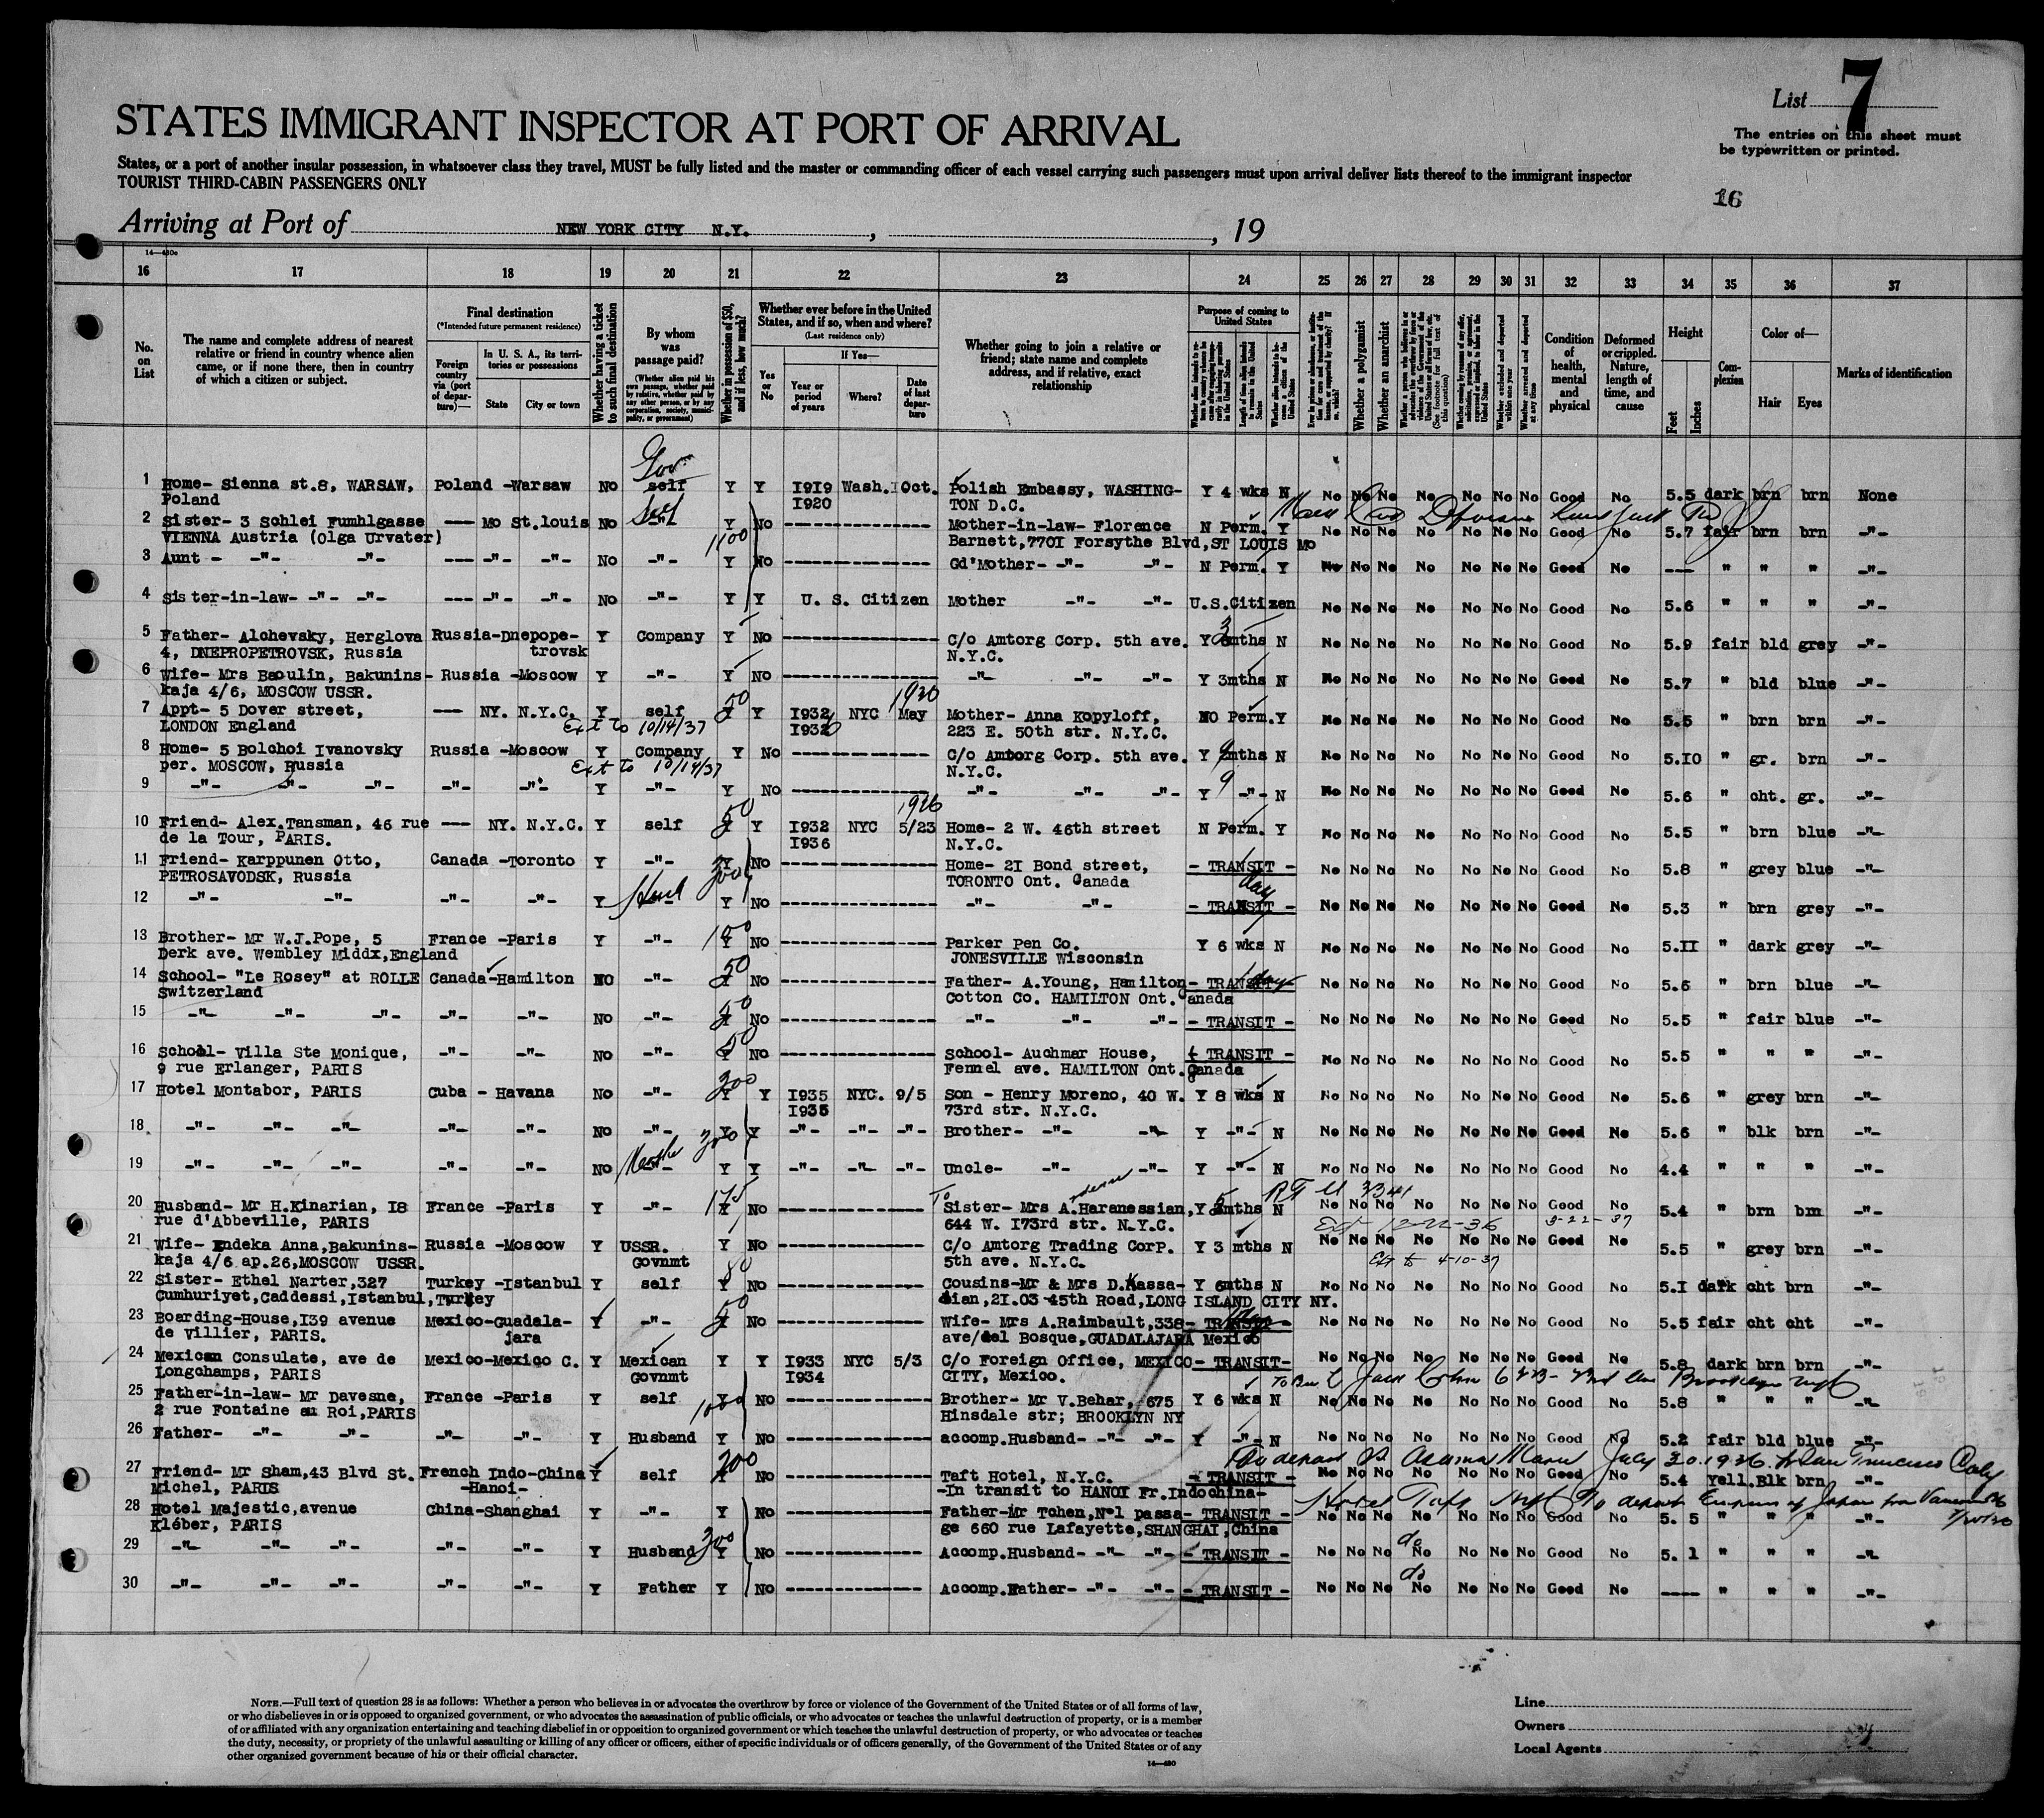 List 7
The entries on this sheet must
be typewritten or printed.
STATES IMMIGRANT INSPECTOR AT PORT OF ARRIVAL
States, or a port of another insular possession, in whatsoever class they travel, MUST be fully listed and the master or commanding officer of each vessel carrying such passengers must upon arrival deliver lists thereof to the immigrant inspector
TOURIST THIRD-CABIN PASSENGERS ONLY
16
Arriving at Port of NEW YORK CITY N.Y. , , 19
16 17 18 19 20 21 22 23 24 25 26 27 28 29 30 31 32 33 34 35 36 37
No. on List
The name and complete address of nearest relative or friend in country whence alien came, or if none there, then in country of which a citizen or subject.
Final destination
(*Intended future permanent residence)
Foreign country via (port of departure)—
In U. S. A., its territories or possessions
State
City or town
Whether having a ticket to such final destination
By whom was passage paid?
(Whether alien paid his own passage, whether paid by relative, whether paid by any other person, or by any corporation, society, municipality, or government)
Whether in possession of $50, and if less, how much?
Whether ever before in the United States, and if so, when and where?
(Last residence only)
Yes or No
If Yes—
Year or period of years
Where?
Date of last departure
Whether going to join a relative or friend; state name and complete address, and if relative, exact relationship
Purpose of coming to United States
Whether a polygamist
Whether an anarchist
Condition of health, mental and physical
Deformed or crippled. Nature, length of time, and cause
Height
Feet
Inches
Complexion
Color of—
Hair
Eyes
Marks of identification
1 Home- Sienna st.8, WARSAW, Poland -Warsaw No self Y Y 1919 Wash. Oct. Polish Embassy, WASHING- Y 4 wks N No No No No No No No Good No 5.5 dark brn brn None
Poland 1920 TON D.C.
2 Sister- 3 Schlei Fumhlgasse --- Mo St.louis No -"- Y No Mother-in-law- Florence N Perm. Y No No No No No No No Good No 5.7 fair brn brn -"-
VIENNA Austria (Olga Urvater) 1100 Barnett,7701 Forsythe Blvd,ST LOUIS Mo
3 Aunt - -"- -"- --- -"- -"- No -"- Y No Gd'Mother- -"- -"- N Perm. Y No No No No No No No Good No --- " " " -"-
4 Sister-in-law- -"- -"- --- -"- -"- No -"- Y Y U. S. Citizen Mother -"- -"- U.S.Citizen No No No No No No No Good No 5.6 " " " -"-
5 Father- Alchevsky, Herglova Russia-Dnepope- Y Company Y No C/o Amtorg Corp. 5th ave. Y 3 mths N No No No No No No No Good No 5.9 fair bld grey -"-
4, DNEPROPETROVSK, Russia trovsk N.Y.C.
6 Wife- Mrs Baoulin, Bakunins- Russia -Moscow Y -"- Y No -"- -"- -"- Y 3mths N No No No No No No No Good No 5.7 " bld blue -"-
kaja 4/6, MOSCOW USSR.
7 Appt- 5 Dover street, --- NY. N.Y.C. Y self 50 Y Y 1932 NYC May 1930 Mother- Anna Kopyloff, NO Perm.Y No No No No No No No Good No 5.5 " brn brn -"-
LONDON England Ext to 10/14/37 1932 223 E. 50th str. N.Y.C.
8 Home- 5 Bolchoi Ivanovsky Russia -Moscow Y Company Y No C/o Amborg Corp. 5th ave. Y 9 mths N No No No No No No No Good No 5.10 " gr. brn -"-
per. MOSCOW, Russia Ext to 10/14/37 N.Y.C.
9 -"- -"- -"- -"- -"- Y -"- Y No -"- -"- -"- Y 9 -"- N No No No No No No No Good No 5.6 " cht. gr. -"-
10 Friend- Alex.Tansman, 46 rue --- NY. N.Y.C. Y self 50 Y Y 1932 NYC 5/23 1926 Home- 2 W. 46th street N Perm. Y No No No No No No No Good No 5.5 " brn blue -"-
de la Tour, PARIS. 1936 N.Y.C.
11 Friend- Karppunen Otto, Canada -Toronto Y -"- Y No Home- 21 Bond street, - TRANSIT - No No No No No No No Good No 5.8 " grey blue -"-
PETROSAVODSK, Russia 300 TORONTO Ont. Canada day
12 -"- -"- -"- -"- Y -"- Y No -"- -"- - TRANSIT - No No No No No No No Good No 5.3 " brn grey -"-
13 Brother- Mr W.J.Pope, 5 France -Paris Y -"- 100 Y No Parker Pen Co. Y 6 wks N No No No No No No No Good No 5.11 " dark grey -"-
Derk ave. Wembley Middx,England JONESVILLE Wisconsin
14 School- "Le Rosey" at ROLLE Canada-Hamilton NO -"- 50 Y No Father- A.Young, Hamilton - TRANSIT - No No No No No No No Good No 5.6 " brn blue -"-
Switzerland Cotton Co. HAMILTON Ont. Canada
15 -"- -"- -"- -"- -"- No -"- 50 Y No -"- -"- -"- - TRANSIT - No No No No No No No Good No 5.5 " fair blue -"-
16 School- Villa Ste Monique, -"- -"- No -"- 50 Y No School- Auchmar House, - TRANSIT - No No No No No No No Good No 5.5 " " " -"-
9 rue Erlanger, PARIS Fennel ave. HAMILTON Ont. Canada
17 Hotel Montabor, PARIS Cuba - Havana No -"- 200 Y Y 1935 NYC. 9/5 Son - Henry Moreno, 40 W. Y 8 wks N No No No No No No No Good No 5.6 " grey brn -"-
1935 73rd str. N.Y.C.
18 -"- -"- -"- -"- -"- No -"- Y Y -"- -"- -"- Brother- -"- -"- Y -"- N No No No No No No No Good No 5.6 " blk brn -"-
19 -"- -"- -"- -"- -"- No -"- 300 Y Y -"- -"- -"- Uncle- -"- -"- Y -"- N No No No No No No No Good No 4.4 " " " -"-
20 Husband- Mr H.Kinarian, 18 France -Paris Y -"- 175 Y No To Sister- Mrs A.Haranessian, Y 5 mths N No No No No No No No Good No 5.4 " brn brn -"-
rue d'Abbeville, PARIS 644 W. 173rd str. N.Y.C. Ext 12-22-36 3-22-37
21 Wife- Endeka Anna,Bakunins- Russia -Moscow Y USSR. Y No C/o Amtorg Trading Corp. Y 3 mths N No No No No No No No Good No 5.5 " grey brn -"-
kaja 4/6 ap.26,MOSCOW USSR. Govnmt 5th ave. N.Y.C. Ext to 4-10-37
22 Sister- Ethel Narter,327 Turkey -Istanbul Y self 80 Y No Cousins-Mr & Mrs D.Kassa- Y 6mths N No No No No No No No Good No 5.1 dark cht brn -"-
Cumhuriyet,Caddessi,Istanbul,Turkey dian,21.03 45th Road,LONG ISLAND CITY NY.
23 Boarding-House,139 avenue Mexico-Guadala- Y -"- 50 Y No Wife- Mrs A.Raimbault,338 - TRANSIT - No No No No No No No Good No 5.5 fair cht cht -"-
de Villier, PARIS. jara ave/del Bosque,GUADALAJARA Mexico
24 Mexican Consulate, ave de Mexico-Mexico C. Y Mexican Y Y 1933 NYC 5/3 C/o Foreign Office, MEXICO - TRANSIT- No No No No No No No Good No 5.8 dark brn brn -"-
Longchamps, PARIS Govnmt 1934 CITY, Mexico.
25 Father-in-law- Mr Davesne, France -Paris Y self Y No Brother- Mr V.Behar, 675 Y 6 wks N No No No No No No No Good No 5.8 " " " -"-
2 rue Fontaine au Roi,PARIS 1000 Hinsdale str; BROOKLYN NY
26 Father- -"- -"- -"- -"- Y Husband Y No accomp.Husband- -"- -"- Y -"- N No No No No No No No Good No 5.2 fair bld blue -"-
To depart SS Asama Maru July 30 1936 fr San Francisco Calif
27 Friend- Mr Sham,43 Blvd St. French Indo-China Y self 200 Y No Taft Hotel, N.Y.C. - TRANSIT - No No No No No No No Good No 5.4 Yell.Blk brn -"-
Michel, PARIS -Hanoi- -In transit to HANOI Fr.Indochina-
Hotel Taft NYC To depart Empress of Japan from Vancouver
28 Hotel Majestic,avenue China-Shanghai Y -"- Y No Father-Mr Tchen,N°1 passa- - TRANSIT - No No No No No No No Good No 5. 5 " " " -"-
Kléber, PARIS ge 660 rue Lafayette,SHANGHAI,China
29 -"- -"- -"- -"- -"- Y Husband 300 Y No Accomp.Husband- -"- -"- - TRANSIT - No No No do No No No No Good No 5. 1 " " " -"-
30 -"- -"- -"- -"- -"- Y Father Y No Accomp.Father- -"- -"- - TRANSIT - No No No do No No No No Good No ---- " " " -"-
NOTE.—Full text of question 28 is as follows: Whether a person who believes in or advocates the overthrow by force or violence of the Government of the United States or of all forms of law,
or who disbelieves in or is opposed to organized government, or who advocates the assassination of public officials, or who advocates or teaches the unlawful destruction of property, or is a member
of or affiliated with any organization entertaining and teaching disbelief in or opposition to organized government or which teaches the unlawful destruction of property, or who advocates or teaches
the duty, necessity, or propriety of the unlawful assaulting or killing of any officer or officers, either of specific individuals or of officers generally, of the Government of the United States or of any
other organized government because of his or their official character.
14—480
Line
Owners
Local Agents